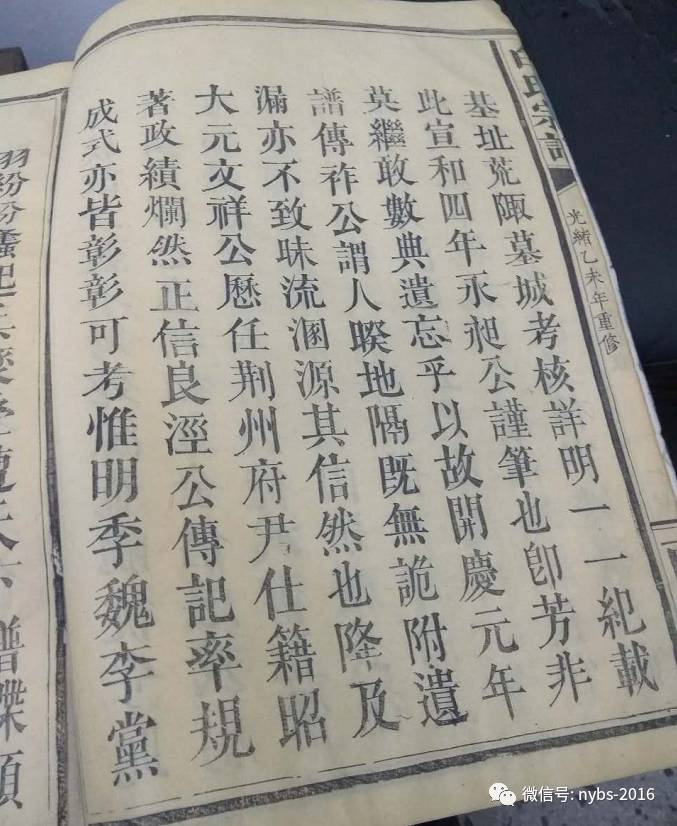 氏宗譜
光緒乙未年重修
基址荒陬墓城考核詳明一一紀載
此宣和四年永昶公謹筆也卽芳非
莫繼敢數典遺忘乎以故開慶元年
譜傳祚公謂人暌地隔既無詭附遺
漏亦不致昧流溷源其信然也隆及
大元文祥公歷任荆州府尹仕籍昭
著政績爛然正信良涇公傳記率規
成式亦皆彰彰可考惟明季魏李黨
羽紛紛蠢起
微信号: nybs-2016